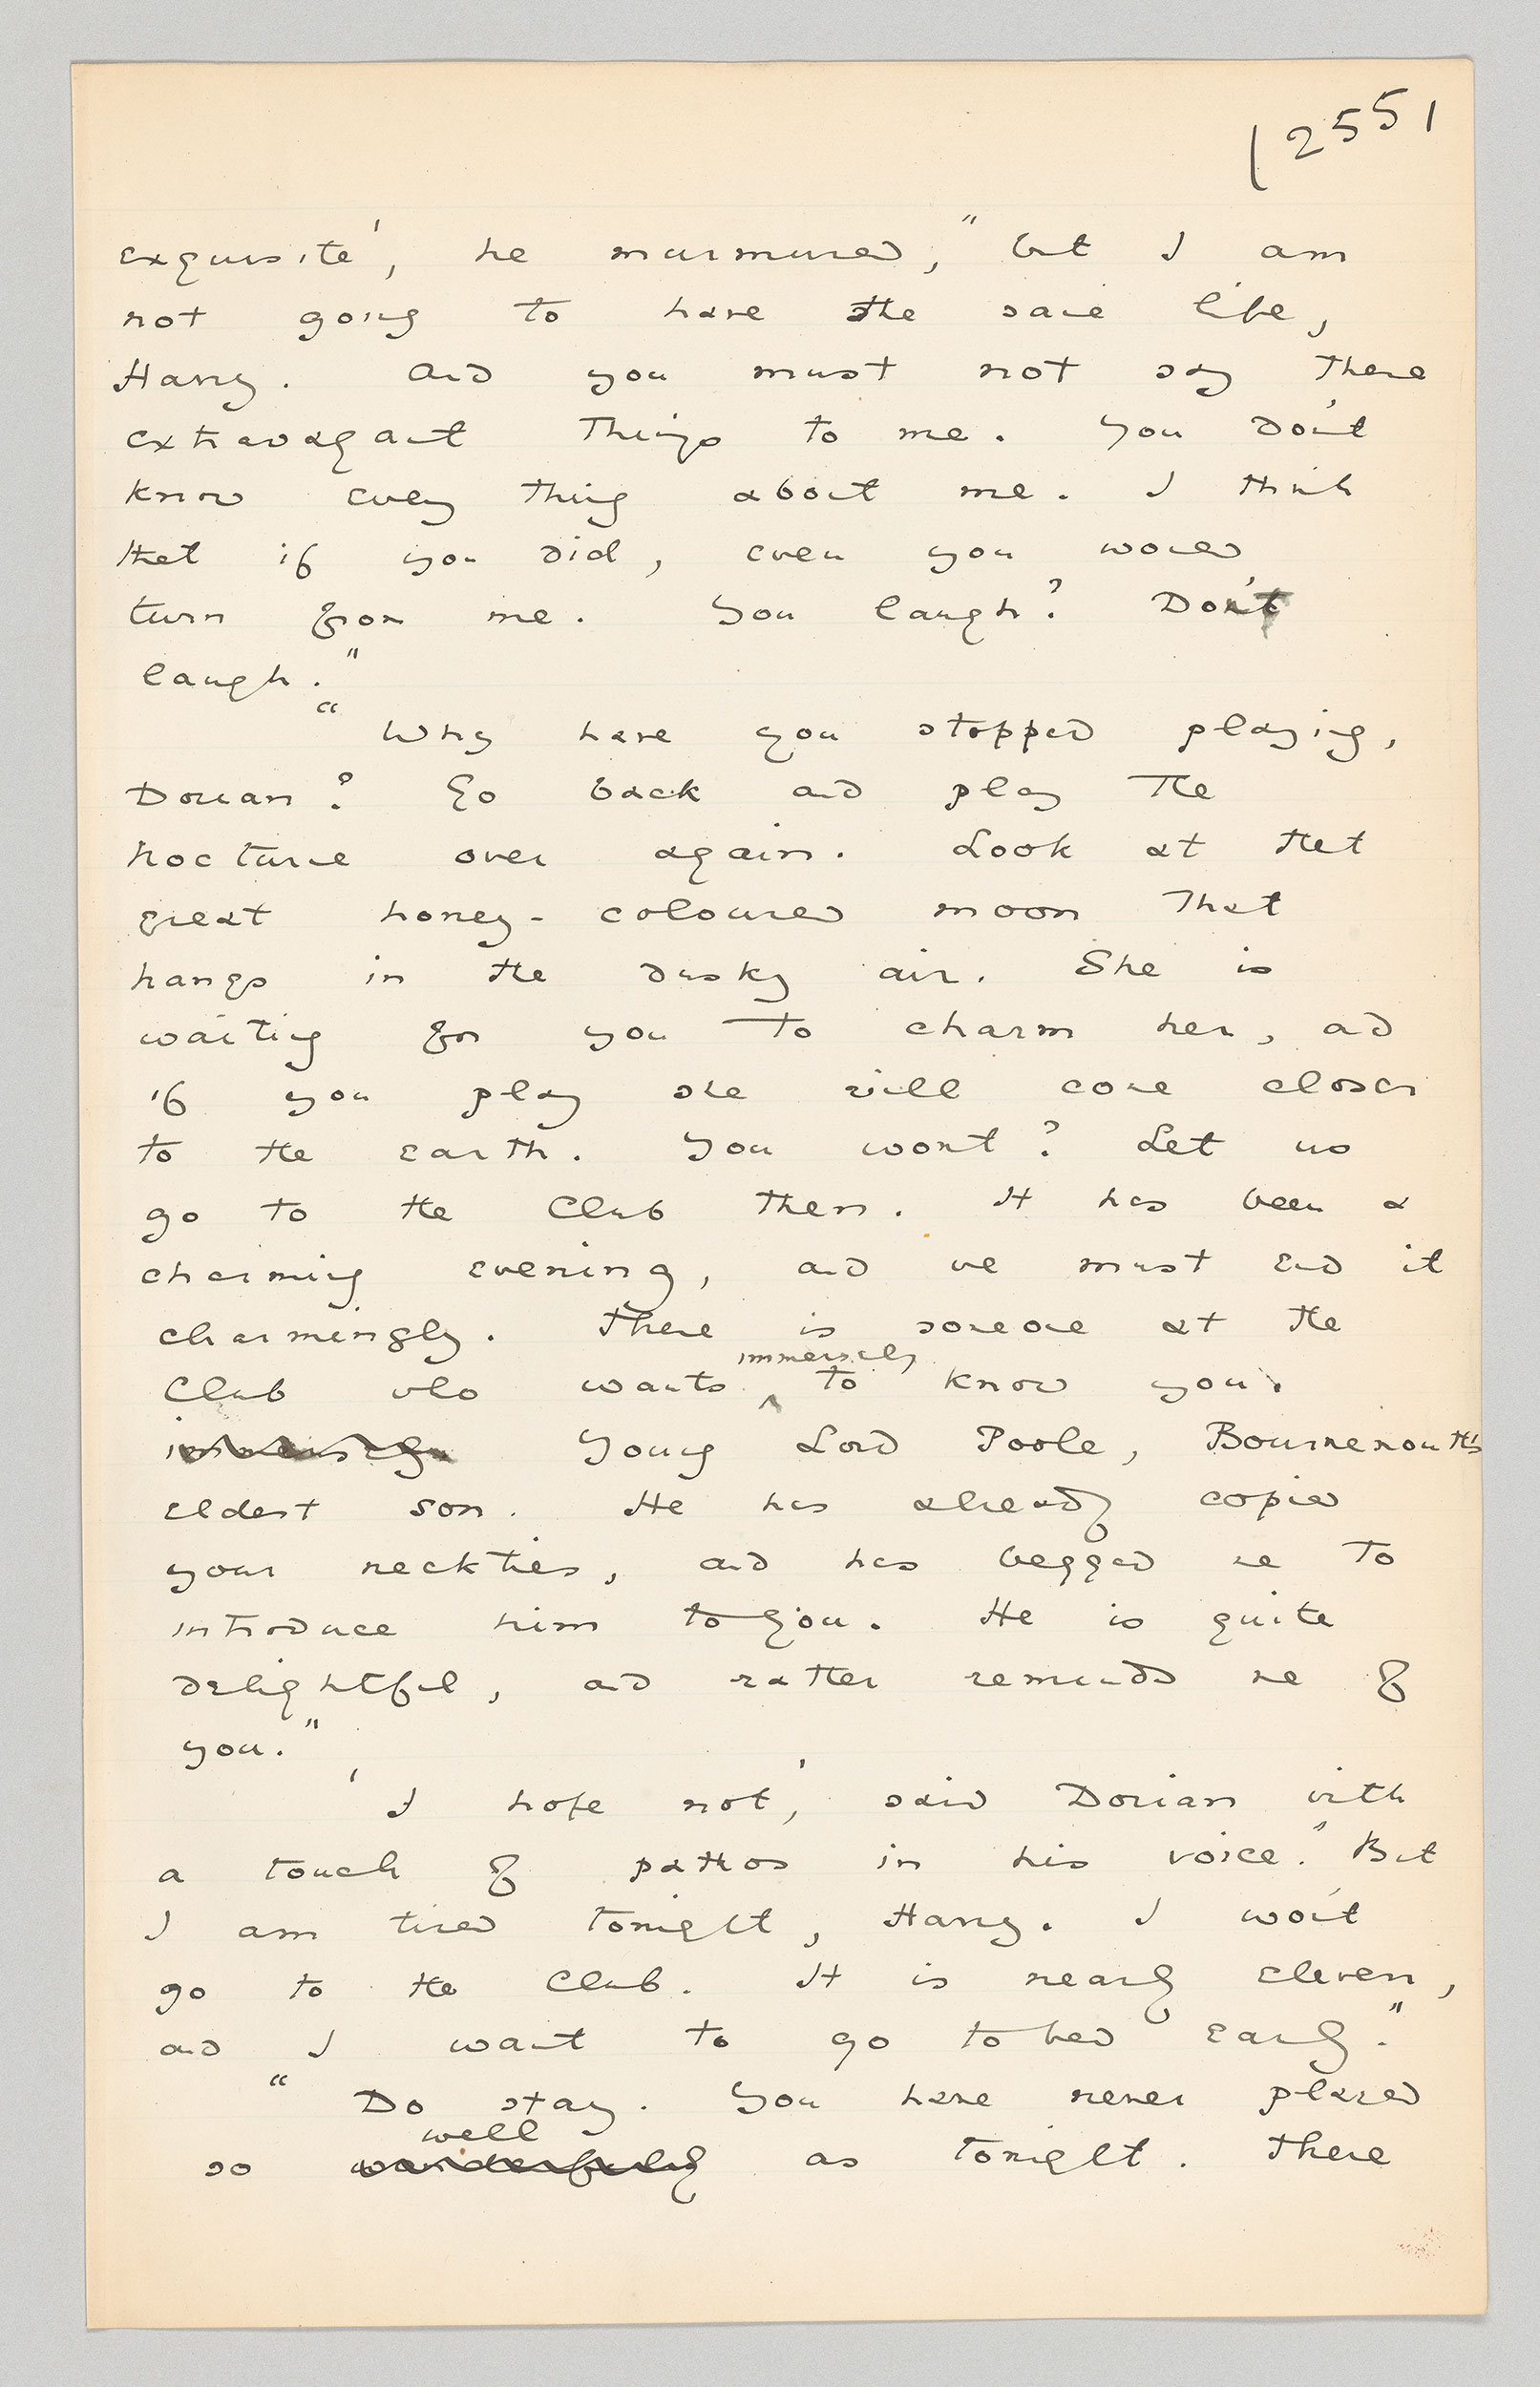 (2551
exquisite', he murmured, "but I am
not going to have the same life,
Harry. And you must not say these
extravagant things to me. You don't
know every thing about me. I think
that if you did, even you would
turn from me. You laugh? Don't
laugh."
"Why have you stopped playing,
Dorian? Go back and play the
nocturne over again. Look at that
great honey-coloured moon that
hangs in the dusky air. She is
waiting for you to charm her, and
if you play she will come closer
to the earth. You wont? Let us
go to the Club then. It has been a
charming evening, and we must end it
charmingly. There is someone at the
immensely
Club who wants ^ to know you.
immensely Young Lord Poole, Bournemouth's
eldest son. He has already copied
your neckties, and has begged me to
introduce him to you. He is quite
delightful, and rather reminds me of
you."
'I hope not', said Dorian with
a touch of pathos in his voice. "But
I am tired tonight, Harry. I won't
go to the Club. It is nearly eleven,
and I want to go to bed early."
"Do stay. You have never played
well
so wonderfully as tonight. There